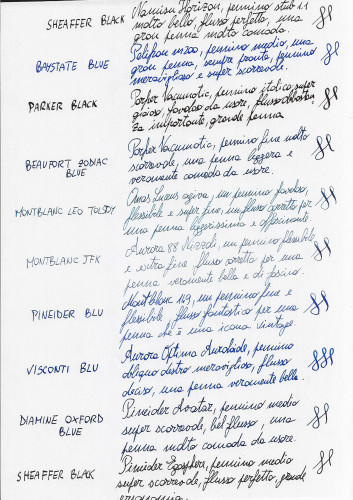 SHEAFFER BLACK
Namisu Horizon, pennino stub 1.1
molto bello, flusso perfetto, una
gran penna molto comoda.
BAYSTATE BLUE
Pelikan m200, pennino medio, una
gran penna, sempre pronta, pennino
meraviglioso e super scorrevole
PARKER BLACK
Parker Vacumatic, pennino italico super
gioioso, favoloso da usare, flusso abbastan-
za importante, grande penna
BEAUFORT ZODIAC
BLUE
Parker Vacumatic, pennino fine molto
scorrevole, una penna leggera e
veramente comoda da usare.
MONTBLANC LEO TOLSTOY
Omas Lucens ogiva, un pennino favoloso,
flessibile e super fine, un flusso corretto per
una penna leggerissima e affascinante.
MONTBLANC JFK
Aurora 88 Nizzoli, un pennino flessibile
e extra fine flusso corretto per una
penna veramente bella e di fascino.
PINEIDER BLU
Montblanc 149, un pennino fine e
flessibile flusso fantastico per una
penna che è una icona vintage.
VISCONTI BLU
Aurora Optima Auroloide, pennino
obliquo destro meraviglioso, flusso
deciso, una penna veramente bella.
DIAMINE OXFORD
BLUE
Pineider Avatar, pennino medio
super scorrevole, bel flusso, una
penna molto comoda da usare.
SHEAFFER BLACK
Pineider Egosfera, pennino medio
super scorrevole, flusso perfetto, grande
ergonomia.